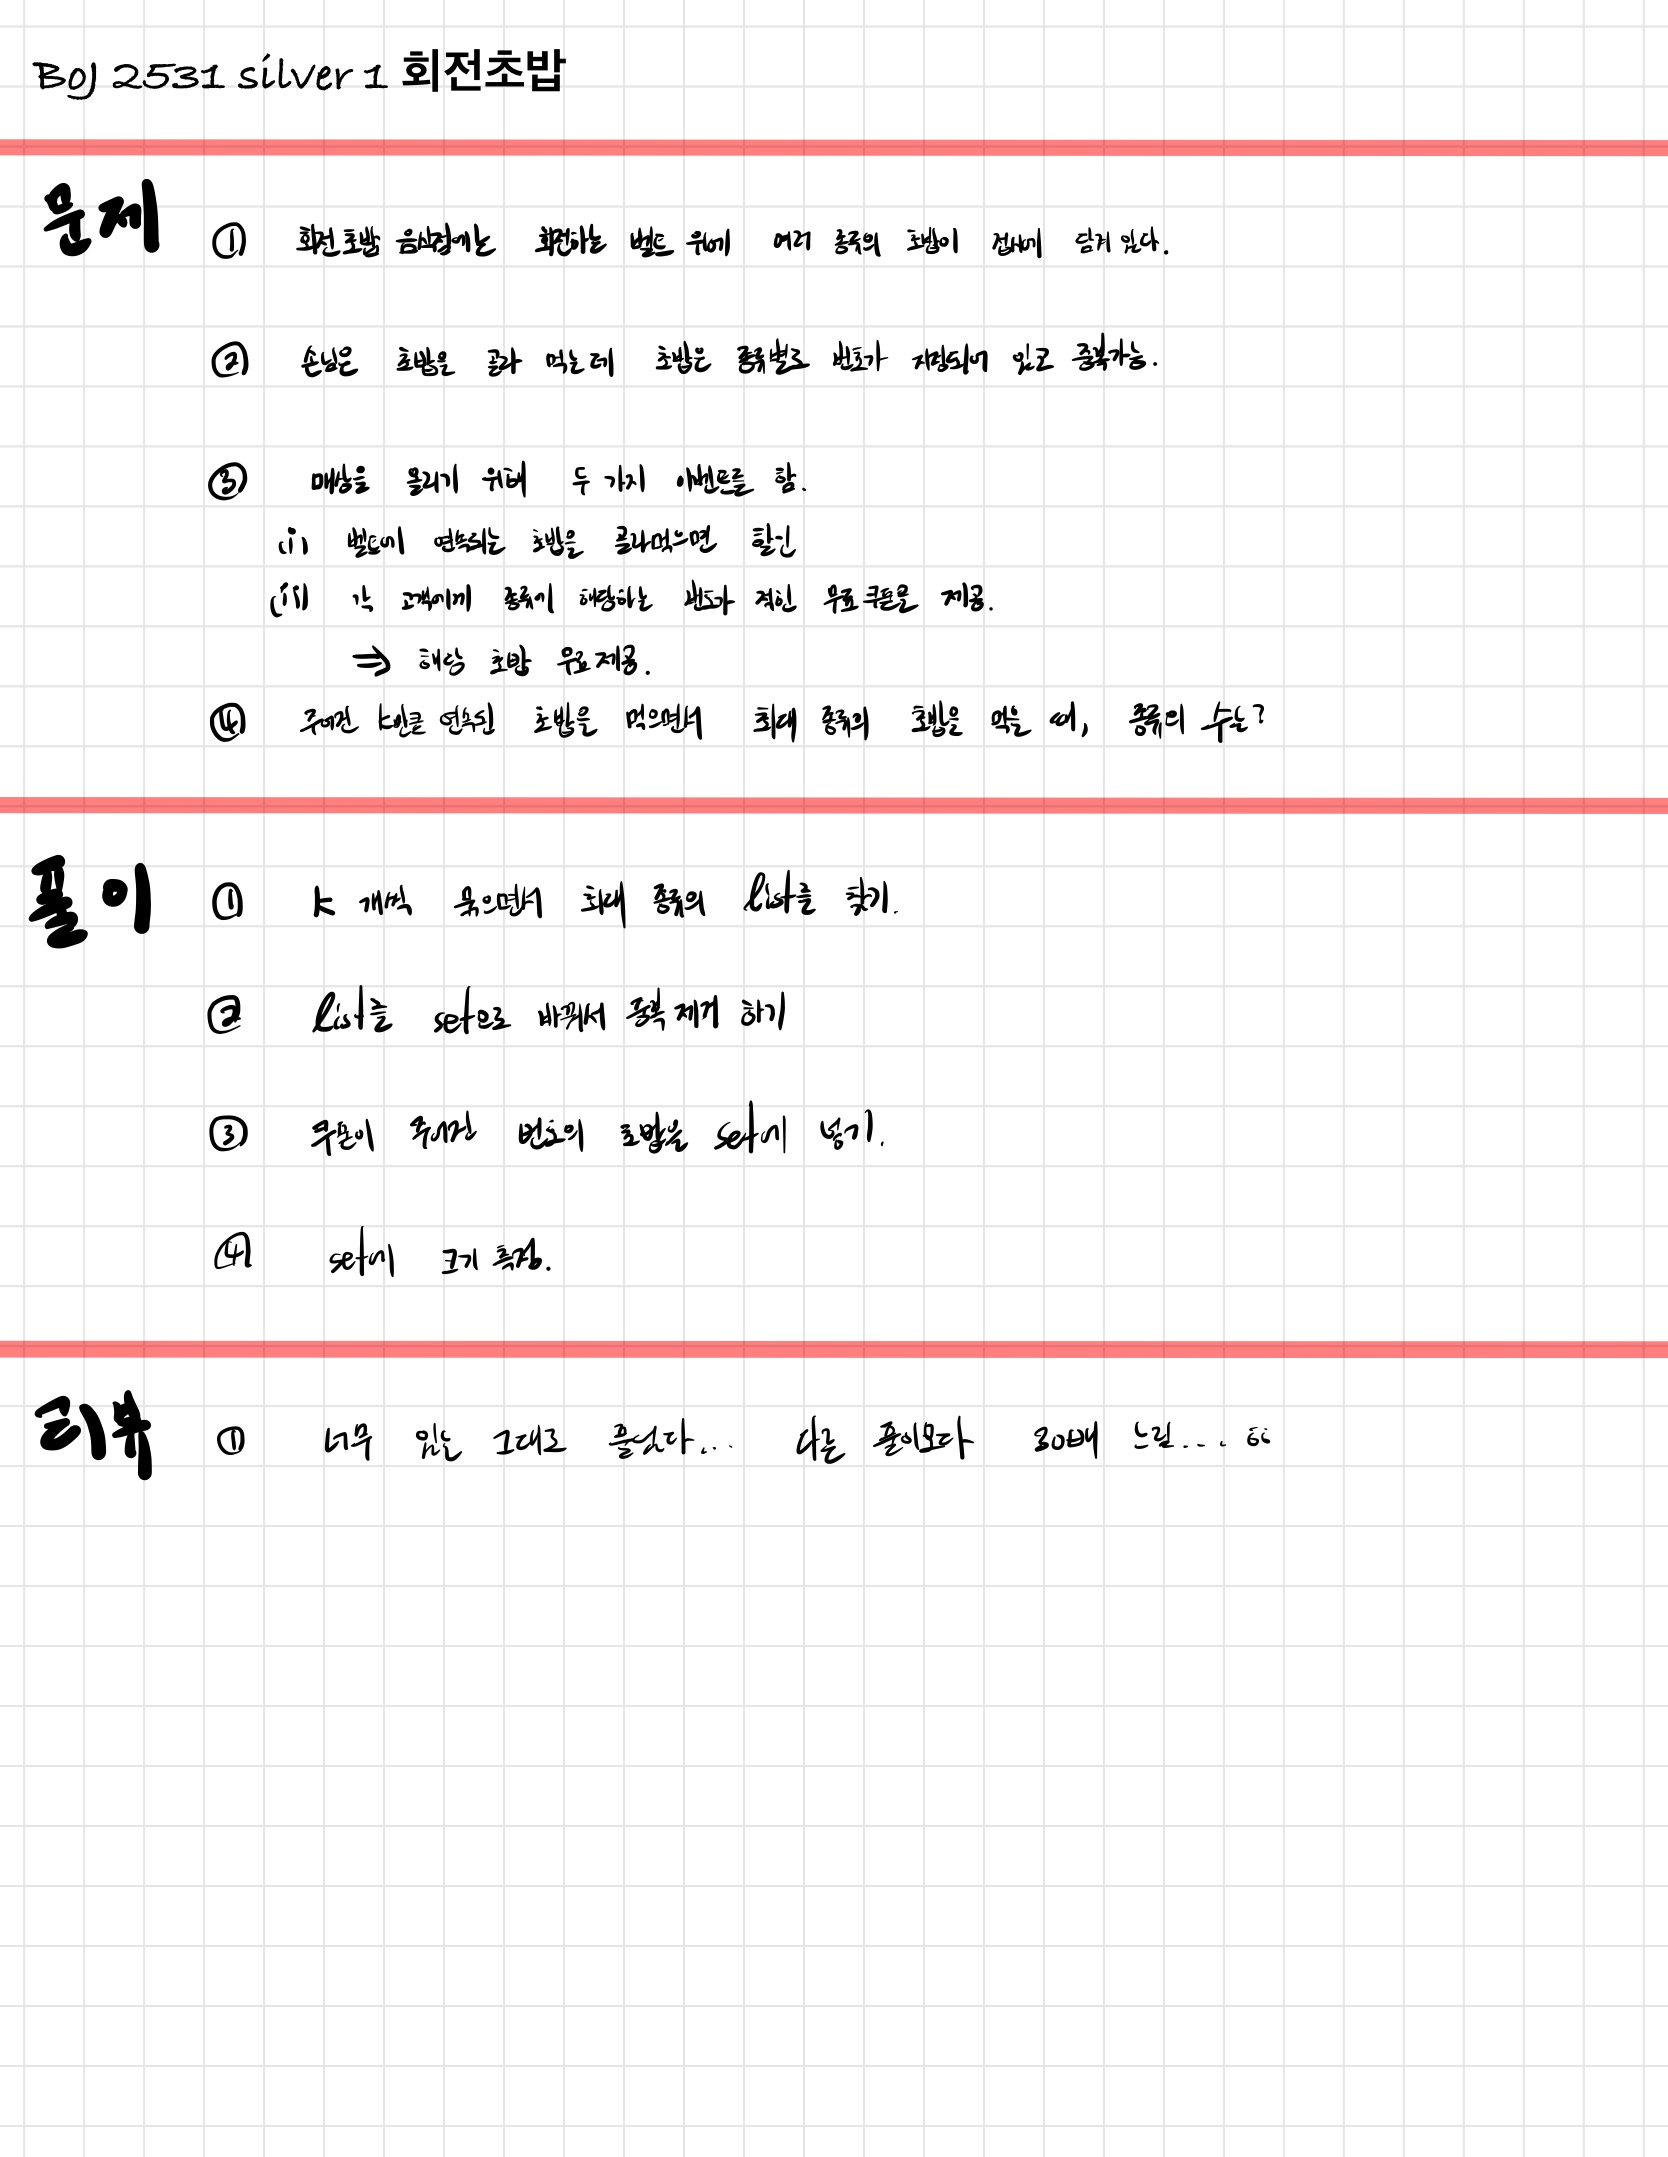 BOJ 2531 silver 1 회전초밥
문제
① 회전초밥 음식점에는 회전하는 벨트 위에 여러 종류의 초밥이 접시에 담겨 있다.
② 손님은 초밥을 골라 먹는데 초밥은 종류별로 번호가 지정되어 있고 중복가능.
③ 매상을 올리기 위해 두 가지 이벤트를 함.
(i) 벨트에 연속되는 초밥을 골라먹으면 할인
(ii) 각 고객에게 종류에 해당하는 번호가 적힌 무료 쿠폰을 제공.
⇒ 해당 초밥 무료 제공.
④ 주어진 k만큼 연속된 초밥을 먹으면서 최대 종류의 초밥을 먹을 때, 종류의 수는?
풀이
① k 개씩 묶으면서 최대 종류의 list를 찾기.
② list를 set으로 바꿔서 중복 제거 하기
③ 쿠폰이 주어진 번호의 초밥을 set에 넣기.
④ set에 크기 측정.
리뷰
① 너무 있는 그대로 풀었다... 다른 풀이보다 30배 느림....